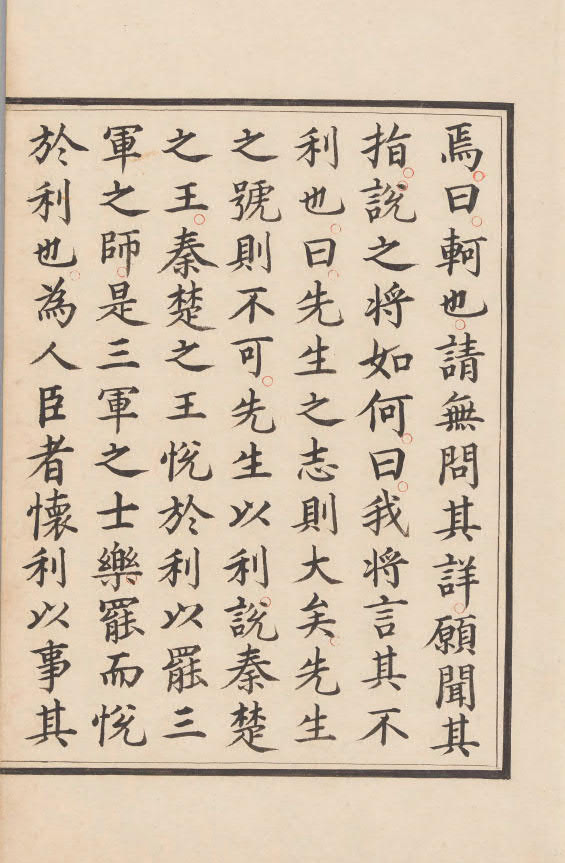 焉曰軻也請無問其詳願聞其
指說之將如何曰我將言其不
利也曰先生之志則大矣先生
之號則不可先生以利說秦楚
之王秦楚之王悅於利以罷三
軍之師是三軍之士樂罷而悅
於利也為人臣者懷利以事其